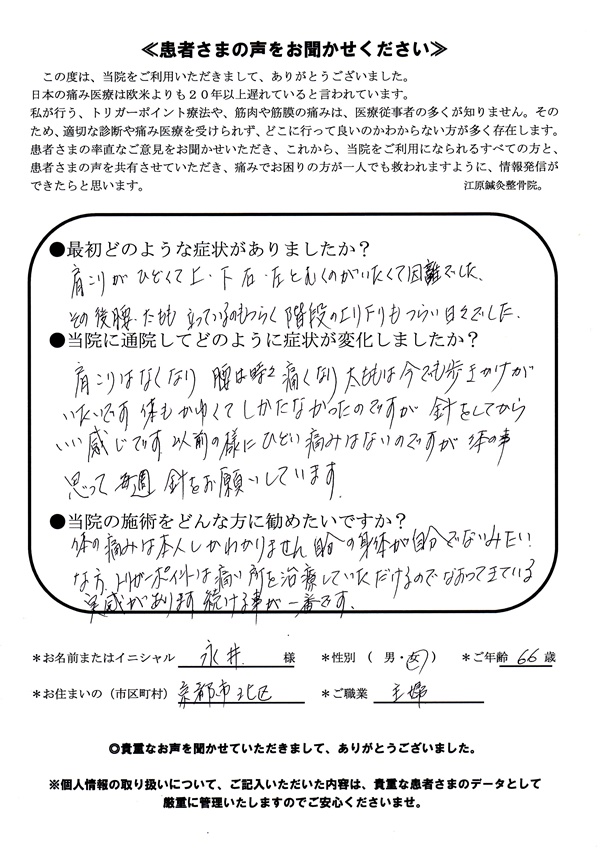 ≪患者さまの声をお聞かせください≫
この度は、当院をご利用いただきまして、ありがとうございました。
日本の痛み医療は欧米よりも２０年以上遅れていると言われています。
私が行う、トリガーポイント療法や、筋肉や筋膜の痛みは、医療従事者の多くが知りません。その
ため、適切な診断や痛み医療を受けられず、どこに行って良いのかわからない方が多く存在します。
患者さまの率直なご意見をお聞かせいただき、これから、当院をご利用になられるすべての方と、
患者さまの声を共有させていただき、痛みでお困りの方が一人でも救われますように、情報発信が
できたらと思います。 江原鍼灸整骨院。
●最初どのような症状がありましたか？
肩こりが ひどくて上・下 右・左とむくのがいたくて困難でした、
その後腰・たちも 立っているのもつらく 階段の上り下りもつらい日々でした.
●当院に通院してどのように症状が変化しましたか？
肩こりはなくなり 腰は時々痛くなり 太ももは今でも歩きかけが
いたいです 体もかゆくてしかたなかったのですが 針をしてから
いい感じです 以前の様にひどい痛みはないのですが 体の事
思って 毎週 針をお願いしています.
●当院の施術をどんな方に勧めたいですか？
体の痛みは本人しかわかりません 自分の身体が自分でないみたい
な方. トリガーポイントは痛い所を治療していただけるのでなおってきている
実感があります 続ける事が一番です.
＊お名前またはイニシャル 永井 様 ＊性別（ 男・女 ） ＊ご年齢 66 歳
＊お住まいの（市区町村）京都市北区 ＊ご職業 主婦
◎貴重なお声を聞かせていただきまして、ありがとうございました。
※個人情報の取り扱いについて、ご記入いただいた内容は、貴重な患者さまのデータとして
厳重に管理いたしますのでご安心くださいませ。